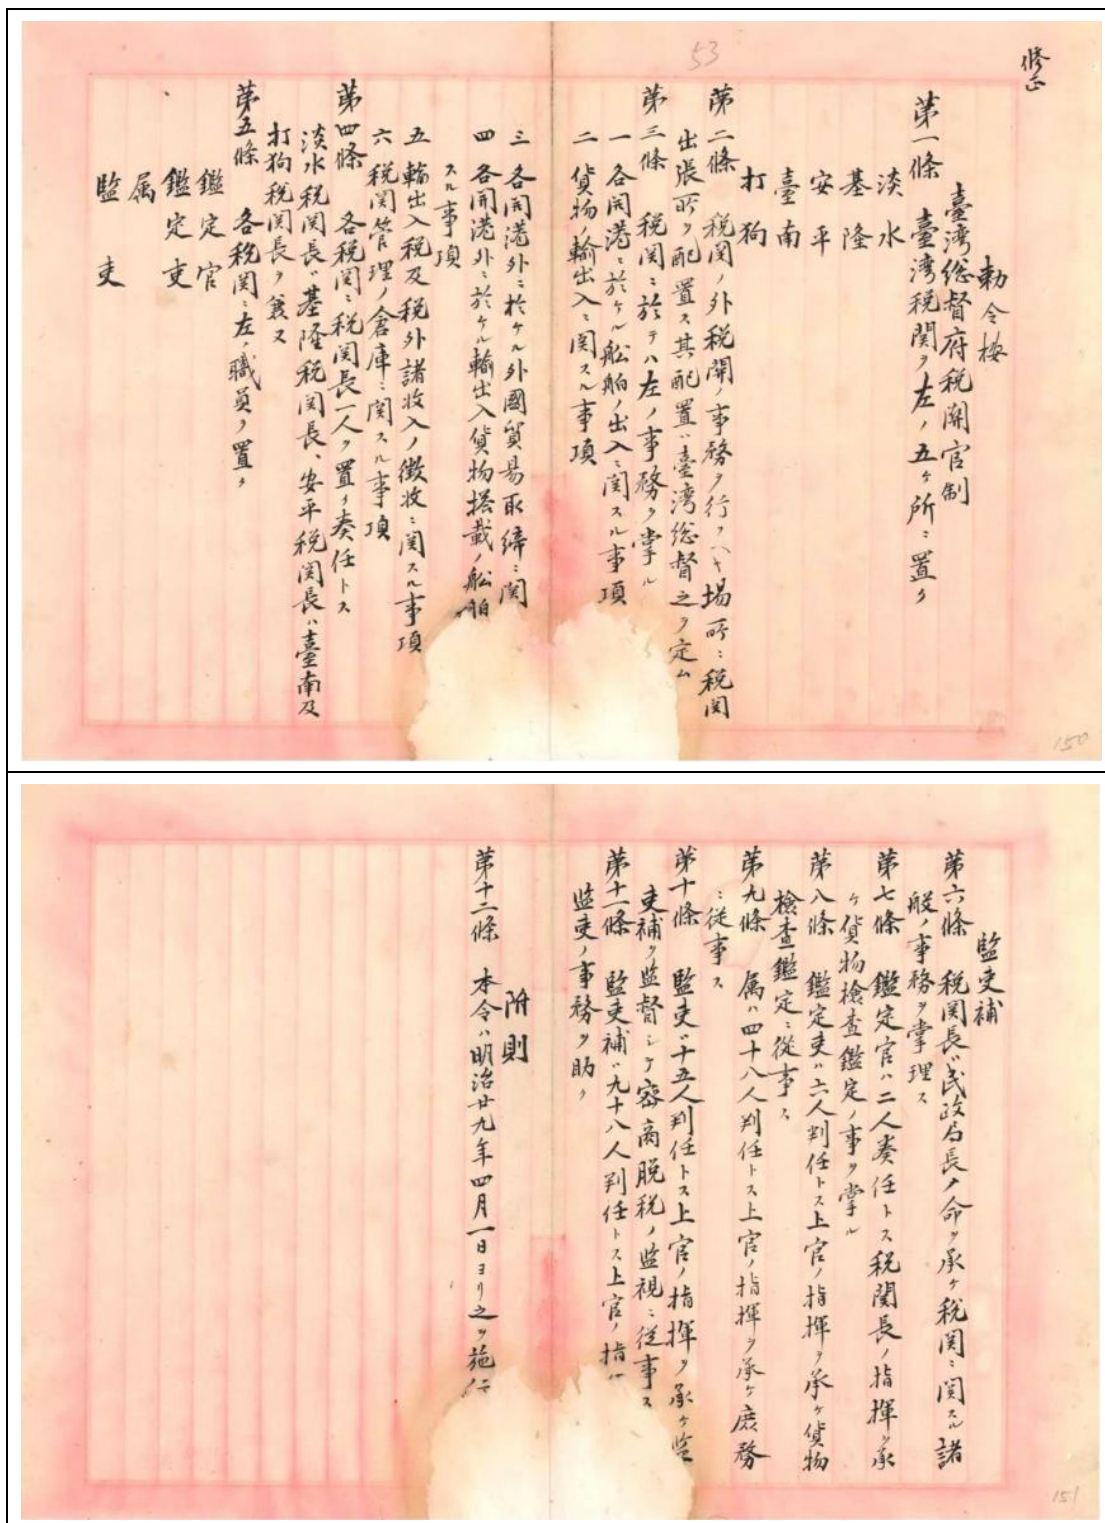 53
修正
勅令按
臺湾総督府税関官制
第一條 臺湾税関ヲ左ノ五ケ所ニ置ク
淡水
基隆
安平
臺南
打狗
第二條 税関ノ外税関ノ事務ヲ行フヘキ場所ニ税関
出張所ヲ配置ス其配置ハ臺湾総督之ヲ定ム
第三條 税関ニ於テハ左ノ事務ヲ掌ル
一 各開港ニ於ケル船舶ノ出入ニ関スル事項
二 貨物ノ輸出入ニ関スル事項
三 各開港外ニ於ケル外國貿易取締ニ関
四 各開港外ニ於ケル輸出入貨物搭載ノ船舶
スル事項
五 輸出入税及税外諸收入ノ徴收ニ関スル事項
六 税関管理ノ倉庫ニ関スル事項
第四條 各税関ニ税関長一人ヲ置ク奏任トス
淡水税関長ハ基隆税関長、安平税関長ハ臺南及
打狗税関長ヲ兼ヌ
第五條 各税関ニ左ノ職員ヲ置ク
鑑定官
鑑定吏
属
監吏
150
監吏補
第六條 税関長ハ民政局長ノ命ヲ承ケ税関ニ関スル諸
般ノ事務ヲ掌理ス
第七條 鑑定官ハ二人奏任トス税関長ノ指揮ヲ承
ケ貨物檢査鑑定ノ事ヲ掌ル
第八條 鑑定吏ハ六人判任トス上官ノ指揮ヲ承ケ貨物
檢査鑑定ニ従事ス
第九條 属ハ四十八人判任トス上官ノ指揮ヲ承ケ庶務
ニ従事ス
第十條 監吏ハ十五人判任トス上官ノ指揮ヲ承ケ監
吏補ヲ監督シケ密商脱税ノ監視ニ従事ス
第十一條 監吏補ハ九十八人判任トス上官ノ指
監吏ノ事務ヲ助ク
附則
第十二條 本令ハ明治廿九年四月一日ヨリ之ヲ施行
151